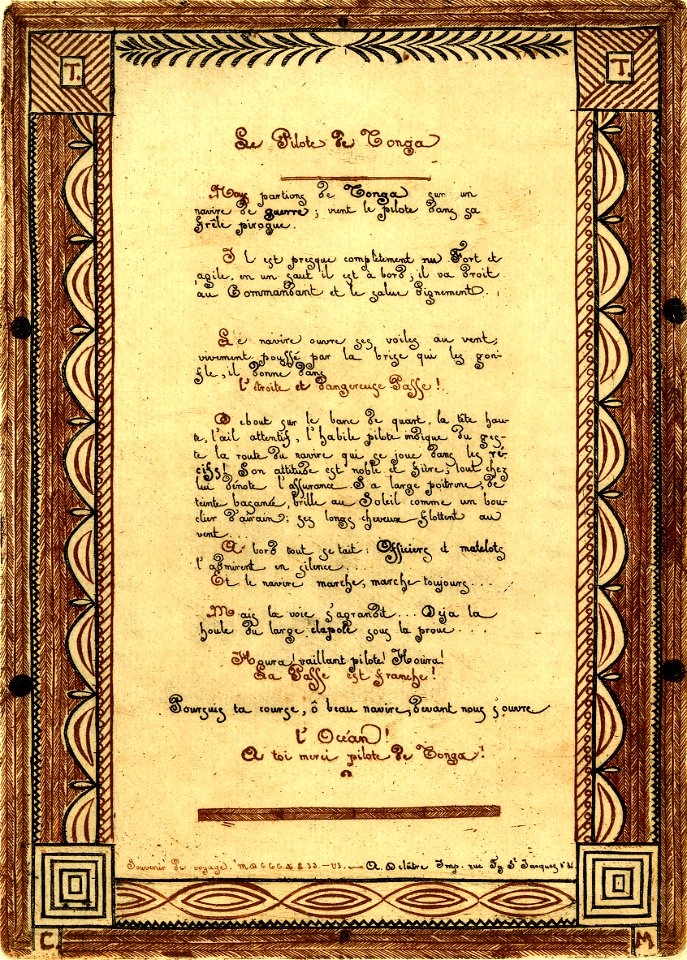 T. T.
Le Pilote de Tonga
Nous partions de Tonga sur un
navire de guerre; vient le pilote dans sa
frêle pirogue.
Il est presque complètement nu Fort et
agile, en un saut il est à bord; il va droit
au Commandant et le salue dignement.
Le navire ouvre ses voiles au vent,
vivement poussé par la brise qui les gon-
fle, il donne dans
l'étroite et dangereuse Passe!
Debout sur le banc de quart, la tête hau-
te, l'œil attentif, l'habile pilote indique du ges-
te la route du navire qui se joue dans les ré-
cifs! Son attitude est noble et fière, tout chez
lui dénote l'assurance. Sa large poitrine, de
teinte basanée, brille au Soleil comme un bou-
clier d'airain; ses longs cheveux flottent au
vent...
A bord tout se tait: Officiers et matelots
l'admirent en silence....
Et le navire marche, marche toujours...
Mais la voie s'agrandit... Déja la
houle du large clapote sous la proue....
Houra! vaillant pilote! Houra!
La Passe est franche!
Poursuis ta course, ô beau navire, devant nous s'ouvre
l'Océan!
A toi merci pilote de Tonga!
Souvenir de voyage. A. Delâtre Imp. rue St Jacques
C. M.